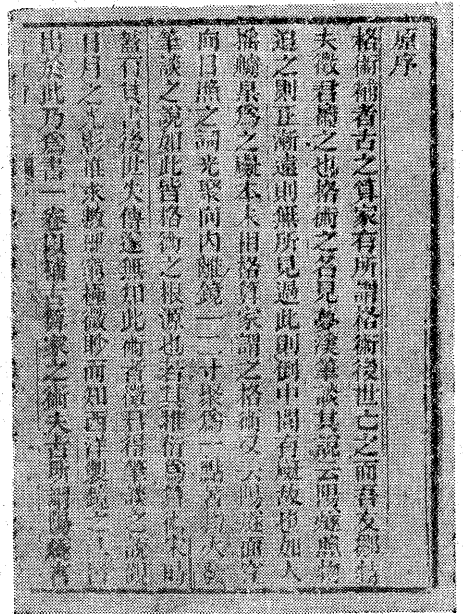 原序
格術補者古之算家有所謂格術後世亡之而吾友鄒特
夫徵君補之也格術之名見夢溪筆談其說云陽燧照物
迫之則正漸遠則無所見過此則倒中間有礙故也如人
搖艣臬為之礙本末相格算家謂之格術又云陽燧面窪
向日照之則光聚向內離鏡一二寸聚為一點著物火發
筆談之說如此皆格術之根源也
蓋有其書後世失傳遂無知此術者徵君得筆談之說觀
日月之光影推求數理窮極微眇而知西洋製鏡之
出於此乃為書一卷以補古算家之術夫古所謂陽燧者